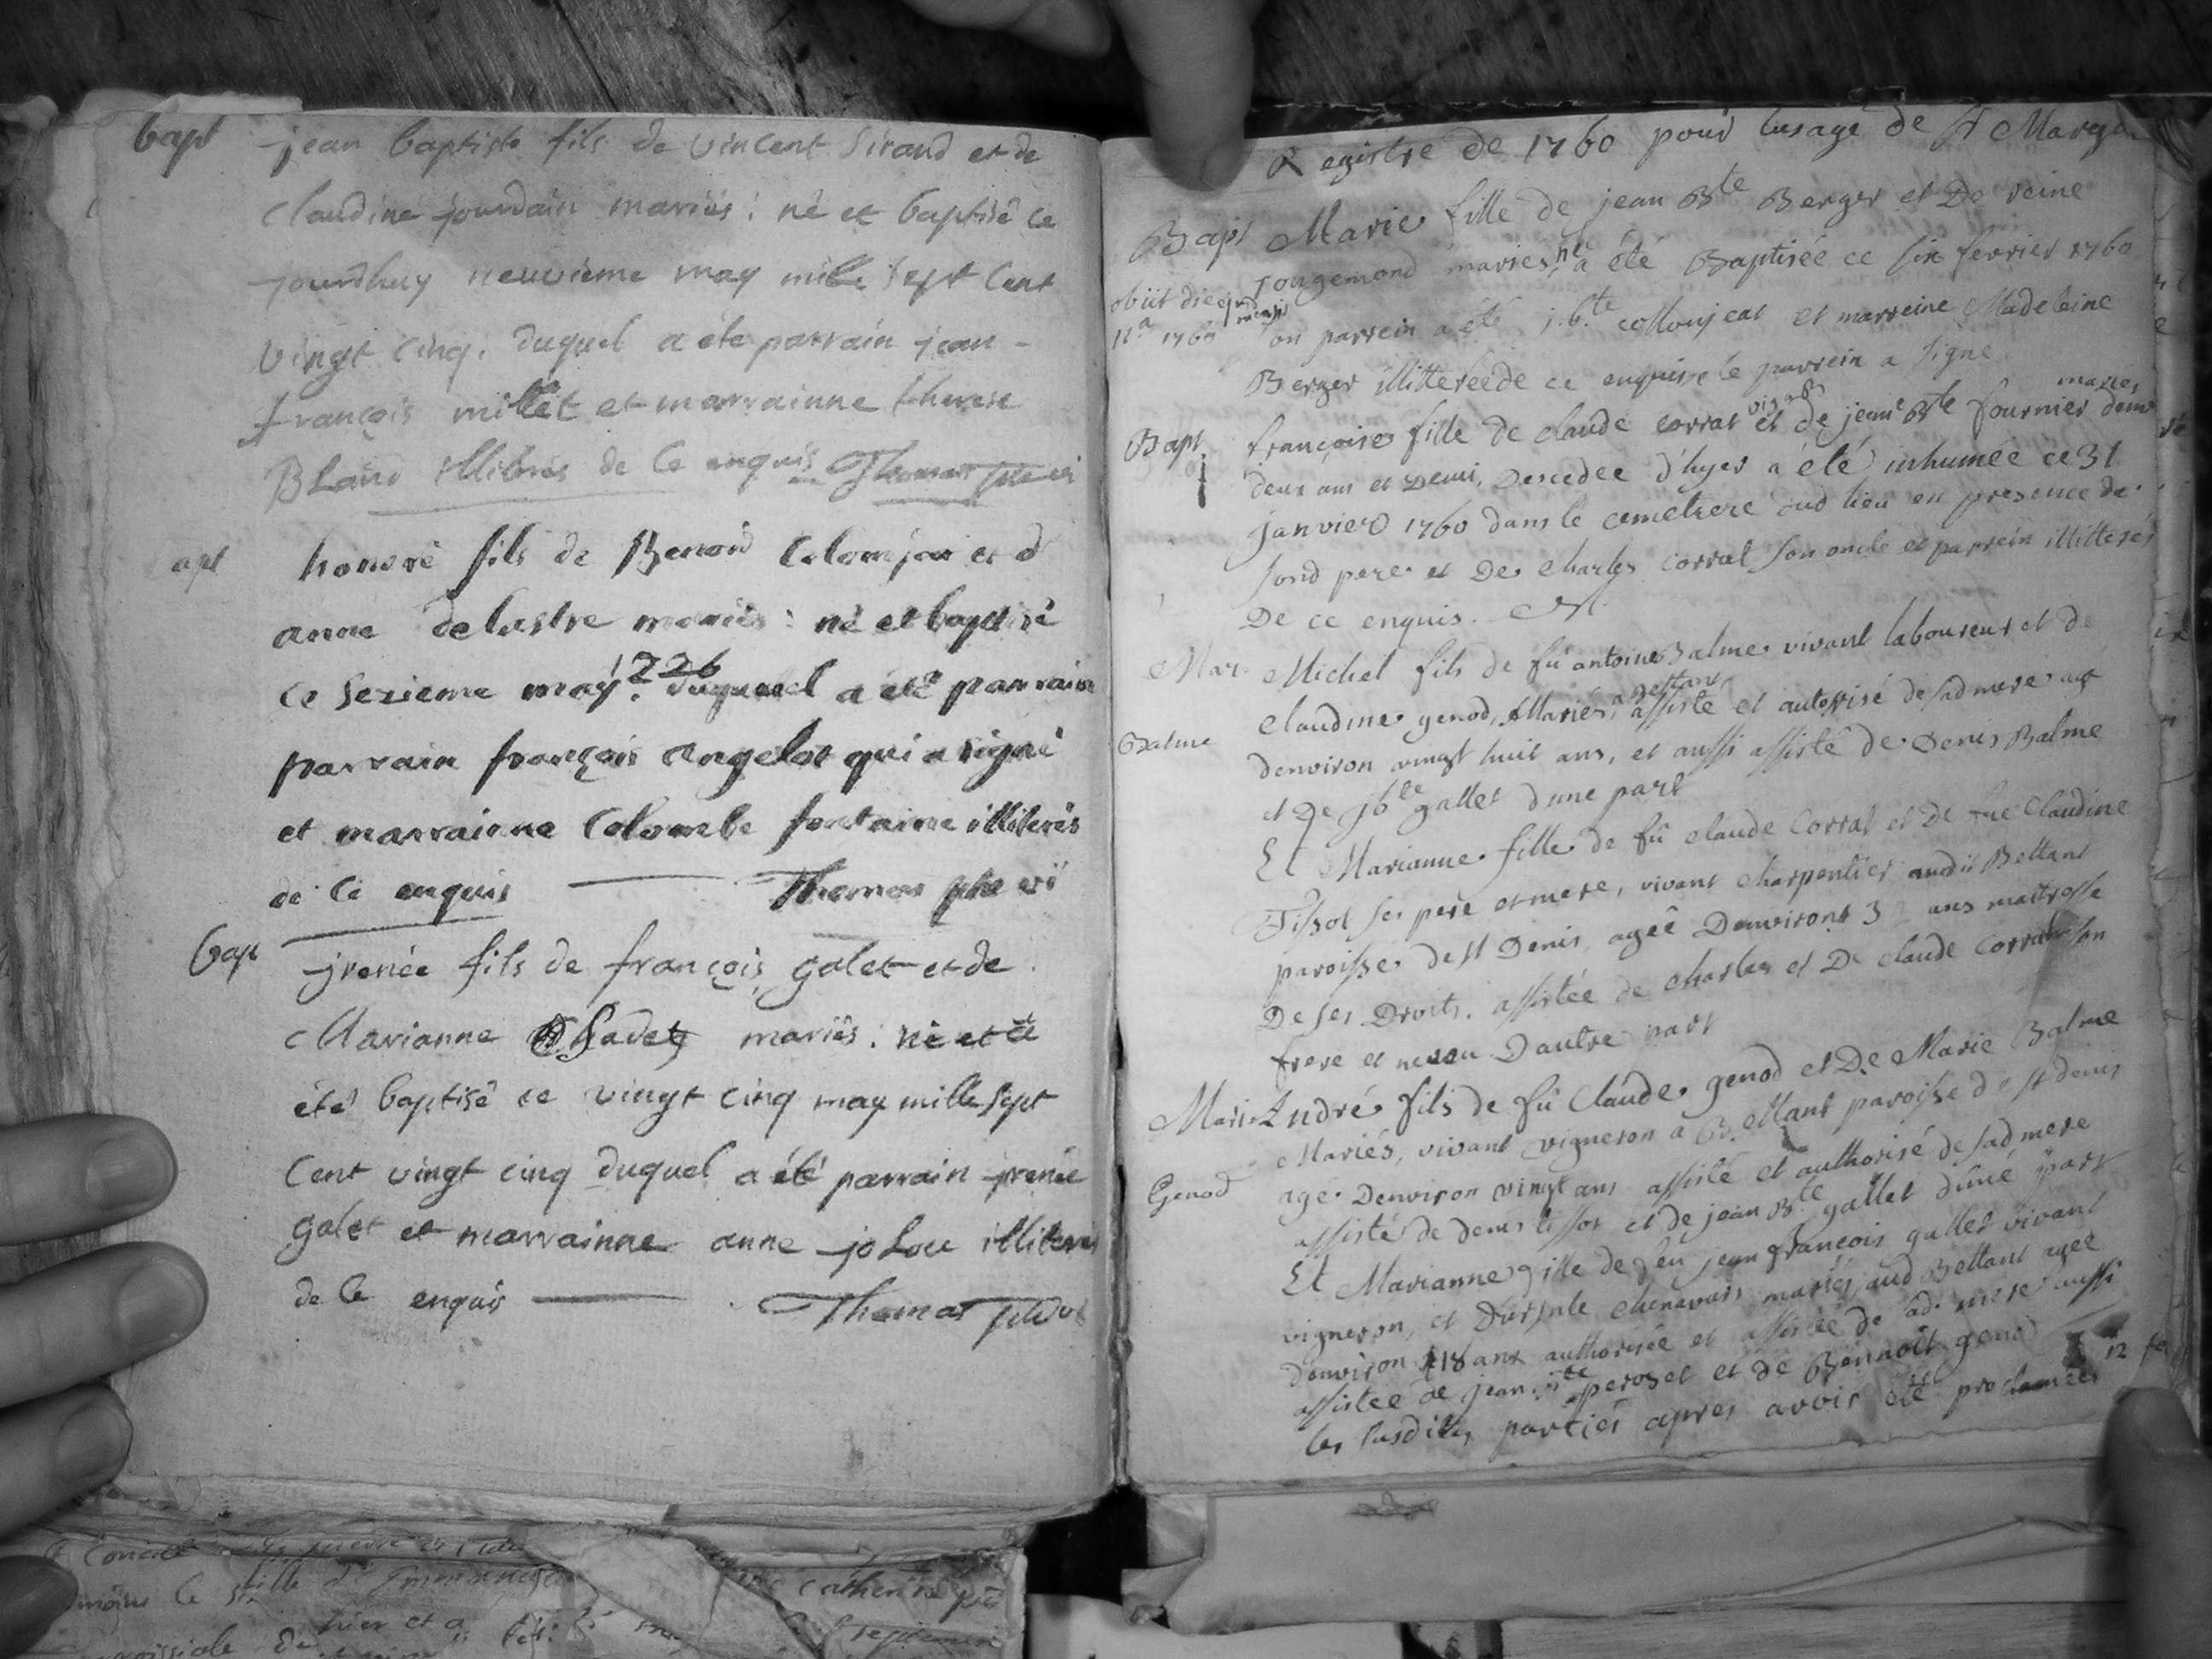 bapt jean baptiste fils de vincent Siraud et de
claudine jourdain mariés : né et baptisé ce
jourdhuy neuvieme may mille sept Cent
vingt cinq. duquel a été parrain jean -
françois millet et marrainne therese
Bland illiterés de ce enquis Thomas
apt honoré fils de Benoid Colomjar et d
anne delastre mariés : né et baptisé
ce sezieme may 1726 duquel a été parrain
parrain françois Angelot qui a signé
et marrainne Colombe fontaine illiterés
de ce enquis Thomas ptre vi
bap jrenée fils de françois galet et de
Marianne mariés : né et a
été baptisé ce vingt cinq may mille sept
Cent vingt cinq duquel a été parrain jrenée
galet et marrainne anne illiterés
de ce enquis Thomas
Registre de 1760 pour lusage de St
Bapt Marie fille de jean Bte Berger et De reine
rougemond mariés, né a été Baptisée ce six fevrier 1760
obiit die
11a 1760 son parrein a été j.bte collonjeat et marreine Madeleine
Berger illitereé de ce enquise le parrein a signé
mariés
Bapt. françoise fille de claude corrat vig et de jeane Bte fournier
deux ans et Demi, Decedeé d'hyer a été inhumée ce 31
janvier 1760 dans le cemetiere dud lieu en presence de
sond pere et De charles corrat son oncle et parrein illitterés
De ce enquis.
Mar. Michel fils de fû antoine Balme vivant laboureur et de
claudine genod, Mariés, a Bettant assisté et autorisé de sad mere agé
Balme denviron vingt huit ans, et aussi assisté de Denis Balme
et De jbte gallet d'une part
Et Marianne fille de fû claude Corrat et De fue Claudine
Tissot ses pere et mere, vivant charpentier audit Bettant
paroisse de st Denis, ageé Denviront 3 ans maitresse
De ses Droits. assistée de charles et De claude corrat son
frere et neveu D'autre part
Mari. André fils de fû Claude genod et De Marie Balme
Mariés, vivant vigneron a Bettant paroisse de st denis
Genod agé Denviron vingt ans assisté et authorisé de sad mere
assisté de denis tissot et de jean Bte gallet d'une part
Et Marianne fille de feu jean françois gallet vivant
vigneron, et D'ursule chenavars mariés, aud Bettant ageé
denviron 18 ans authorisée et assistée de sad. mere aussi
assistée de jean Bte perozet et de Bennoit genod
les susdites parties apres avoir été proclamées 12 fe